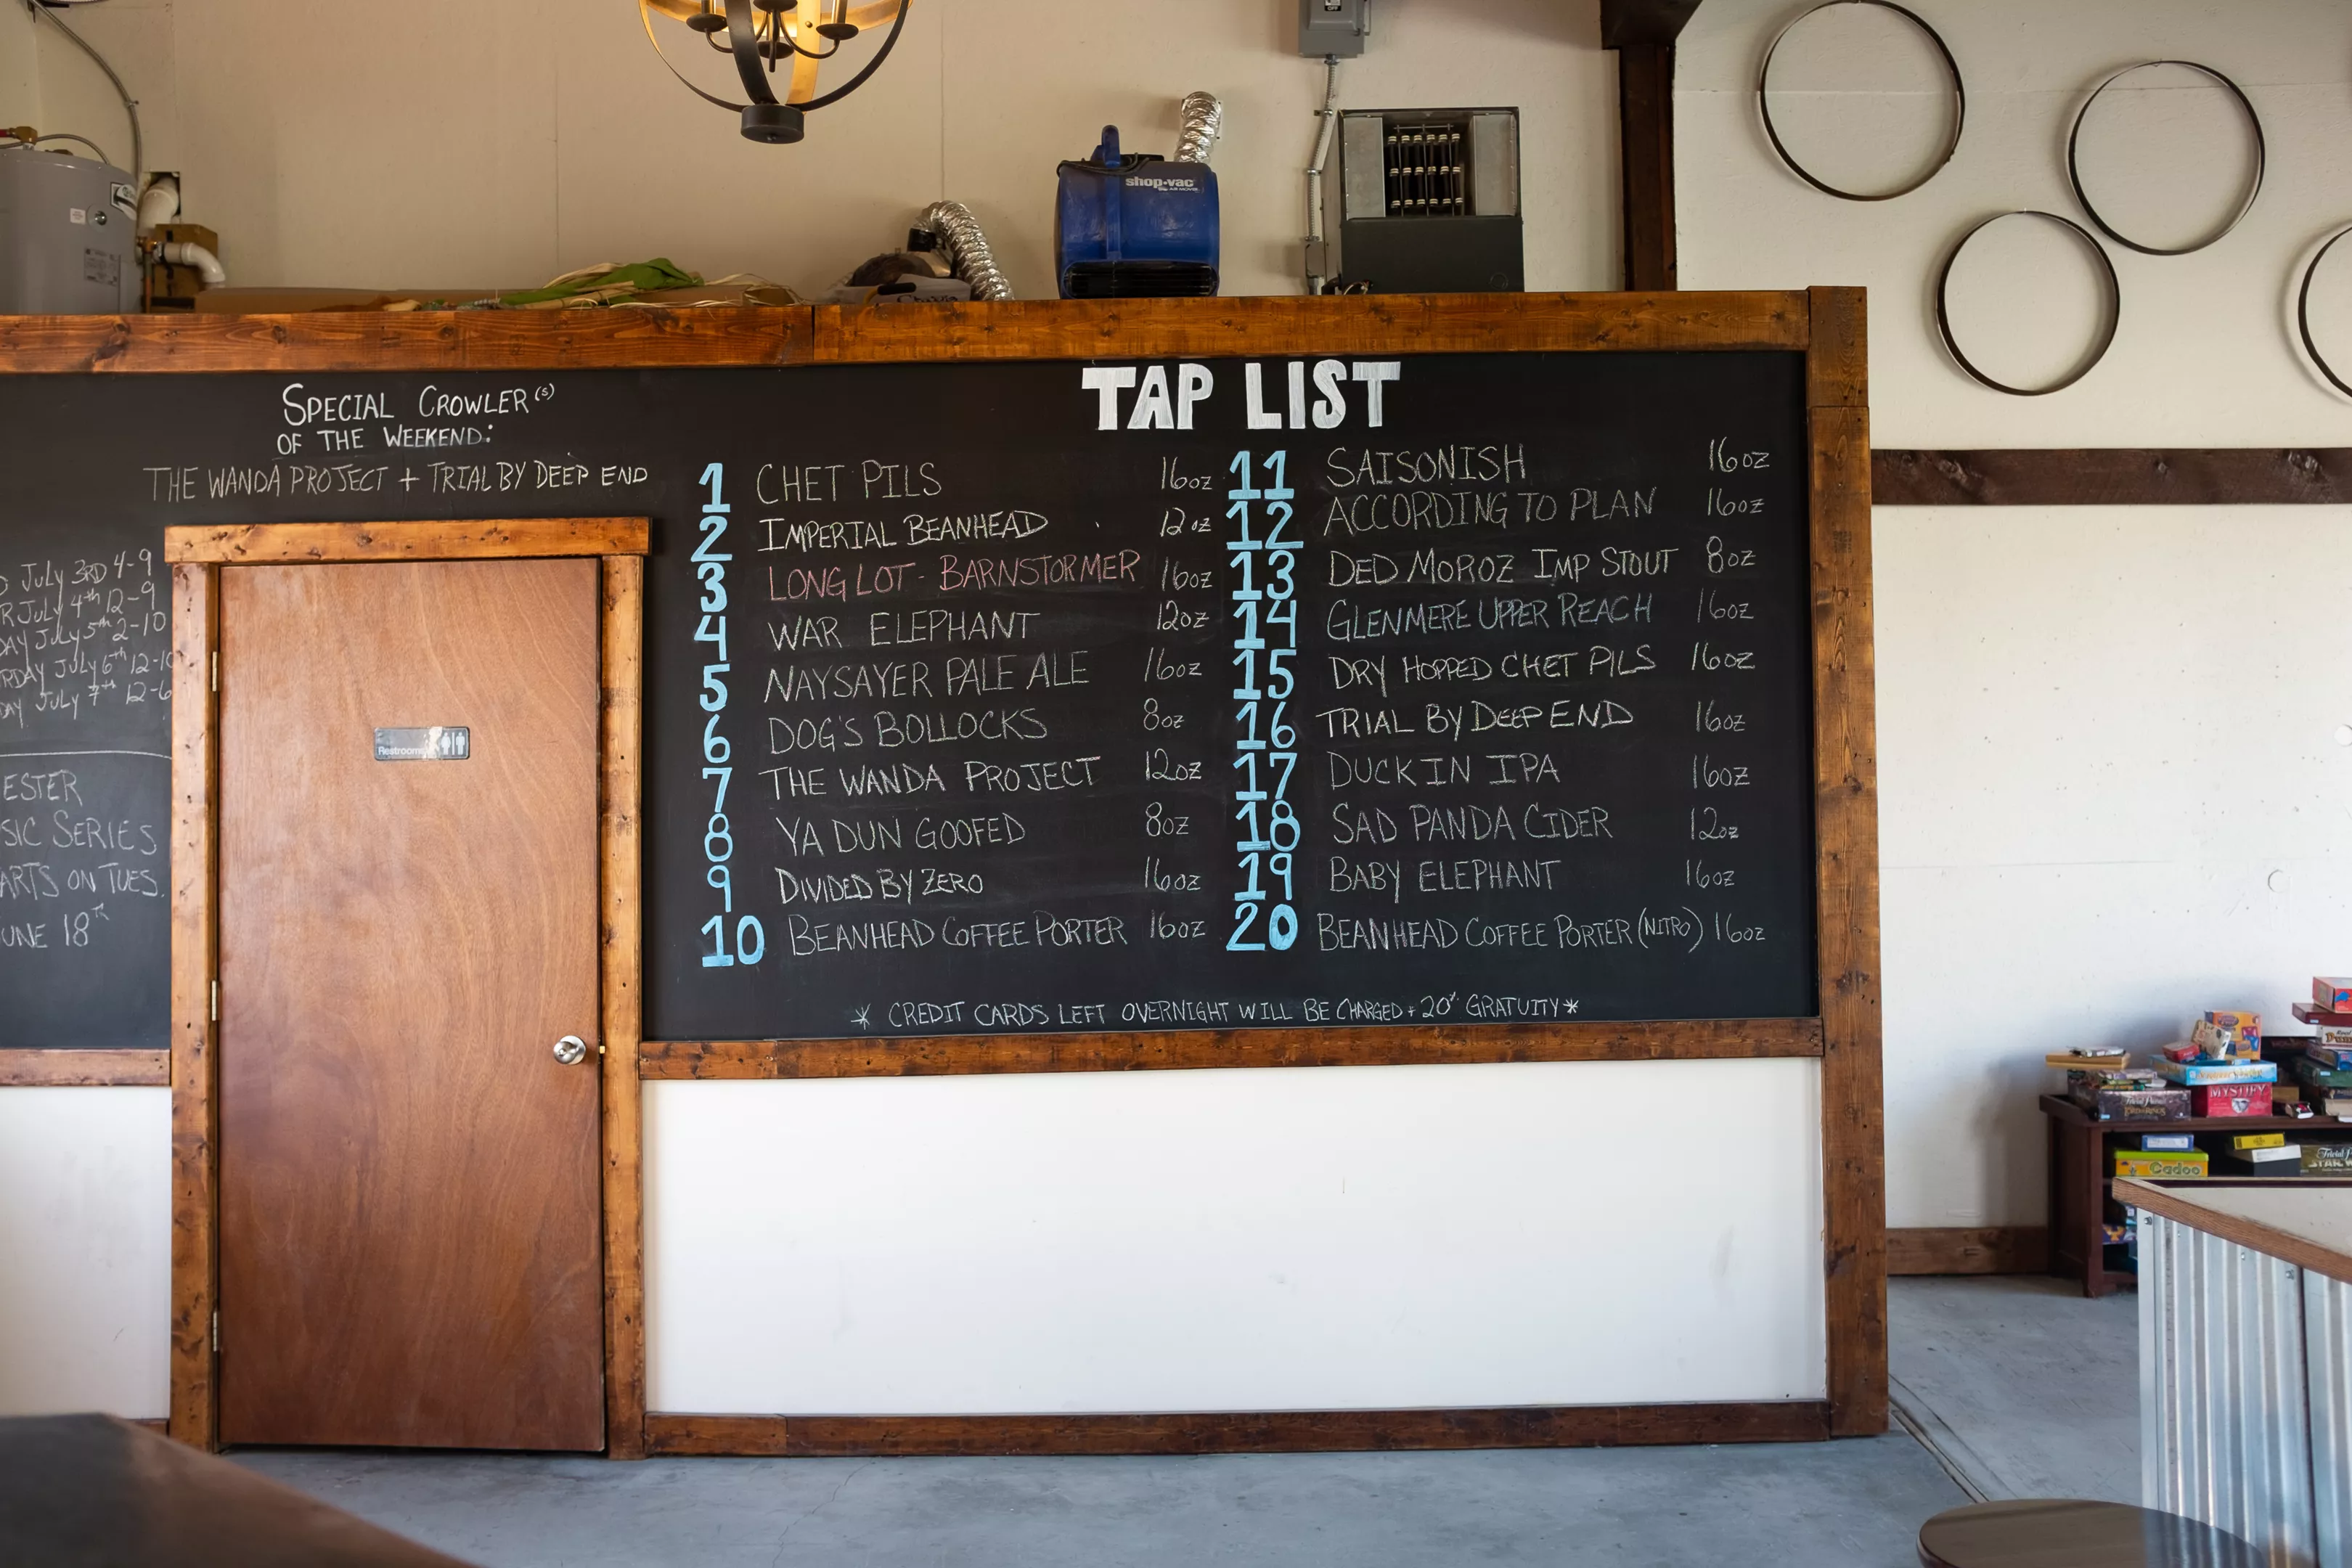 shop-vac
SPECIAL CROWLER(S)
OF THE WEEKEND:
THE WANDA PROJECT + TRIAL BY DEEP END
JULY 3RD 4-9
JULY 4th 12-9
JULY 5th 2-10
JULY 6th 12-10
JULY 7th 12-6
ESTER
SIC SERIES
ARTS ON TUES.
UNE 18th
Restrooms
TAP LIST
1 CHET PILS 16oz
2 IMPERIAL BEANHEAD 12oz
3 LONG LOT - BARNSTORMER 16oz
4 WAR ELEPHANT 12oz
5 NAYSAYER PALE ALE 16oz
6 DOG'S BOLLOCKS 8oz
7 THE WANDA PROJECT 12oz
8 YA DUN GOOFED 8oz
9 DIVIDED BY ZERO 16oz
10 BEANHEAD COFFEE PORTER 16oz
11 SAISONISH 16oz
12 ACCORDING TO PLAN 16oz
13 DED MOROZ IMP STOUT 8oz
14 GLENMERE UPPER REACH 16oz
15 DRY HOPPED CHET PILS 16oz
16 TRIAL BY DEEP END 16oz
17 DUCK IN IPA 16oz
18 SAD PANDA CIDER 12oz
19 BABY ELEPHANT 16oz
20 BEANHEAD COFFEE PORTER (NITRO) 16oz
* CREDIT CARDS LEFT OVERNIGHT WILL BE CHARGED + 20% GRATUITY *
MYSTIFY
Cadoo